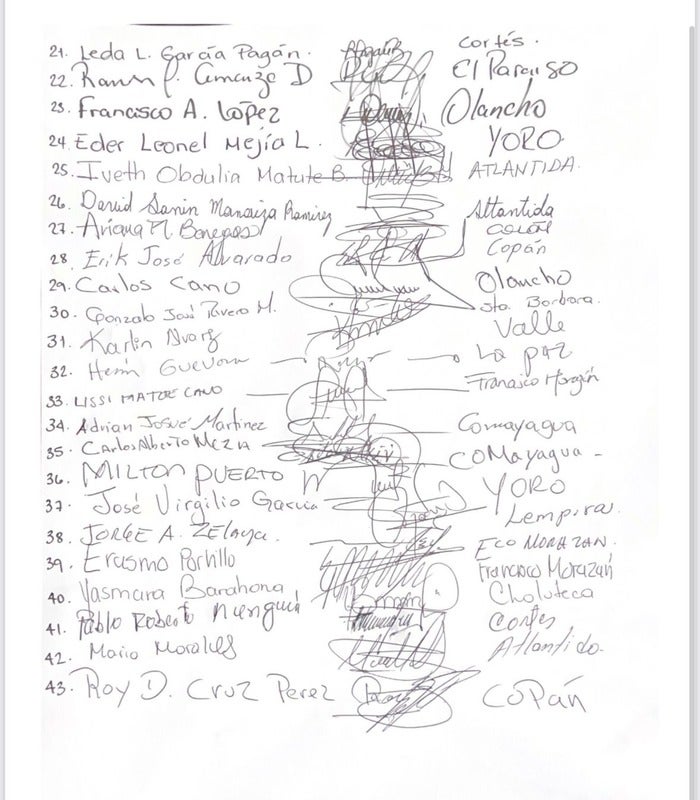 21. Leda L. García Pagán. Cortés.
22. El Paraiso
23. Francisco A. López Olancho
24. Eder Leonel Mejía L. YORO
25. Iveth Obdulia Matute B. ATLANTIDA.
26. David Ramirez Atlantida
27. Ariana M.
28. Erik José Alvarado Copán
29. Carlos Cano Olancho
30. Gonzalo José Rivera M. Sta. Barbara.
31. Karlin Valle
32. La paz
33. LISSI MATUTE CANO Francisco Morazán
34. Adrian Josué Martinez Comayagua
35. Carlos Alberto MEZIA COMayagua -
36. MILTON PUERTO YORO
37. José Virgilio Garcia Lempira
38. JORGE A. ZElaya. FCO MORAZAN.
39. Erasmo Portillo Francisco Morazán
40. Yasmara Barahona Choluteca
41. Pablo Roberto Cortes
42. Mario Morales Atlantida.
43. Roy D. Cruz Perez COPÁN